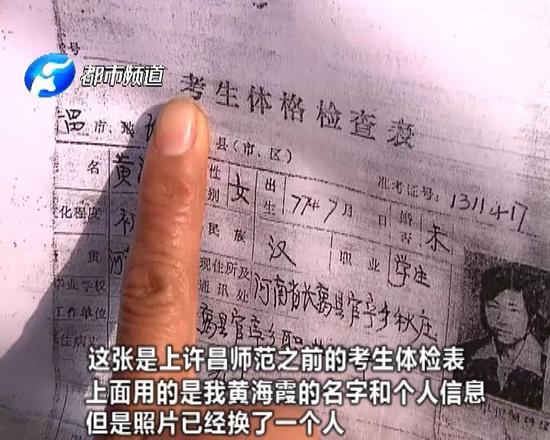 都市频道
号
考生体格检查表
市、
县(市、区)
准考证号:1311417
名 黄 性别 女 出生 77年9月 日 婚否 未
化程度 初 民族 汉 职业 学生
贯 河 现住所及通讯处 河南省长葛县官亭乡秋庄
毕业学校 葛县官亭乡职
工作单位
这张是上许昌师范之前的考生体检表
上面用的是我黄海霞的名字和个人信息
但是照片已经换了一个人